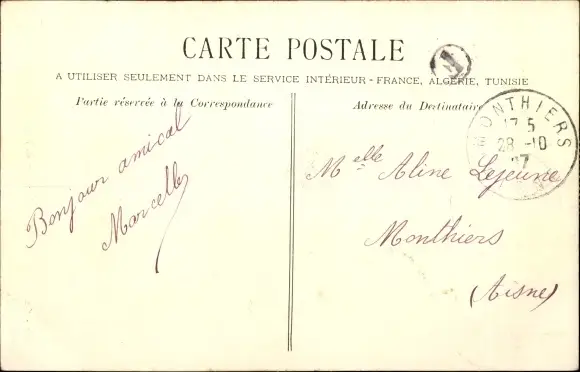 CARTE POSTALE
A UTILISER SEULEMENT DANS LE SERVICE INTÉRIEUR - FRANCE, ALGÉRIE, TUNISIE
Partie réservée à la Correspondance
Adresse du Destinataire
Bonjour amical
Marcelle
MONTHIERS
17 5
28 -10
07
Melle Aline Lejeune
Monthiers
(Aisne)